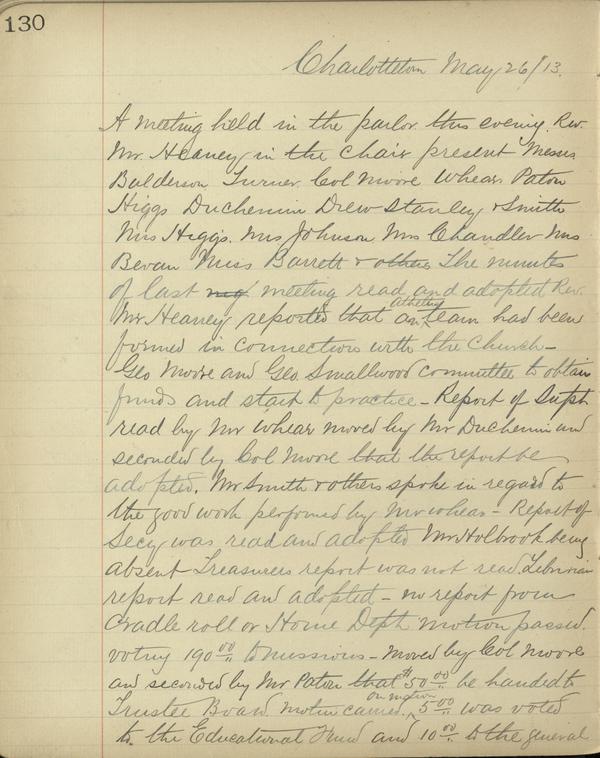 130
Charlottetown May 26/13.
A meeting held in the parlor this evening. Rev.
Mr. Heaney in the chair present Messrs
Balderson Turner. Col Moore Whear. Paton
Higgs Duchemin Drew Stanley & Smith
Mrs Higgs. Mrs Johnson Mrs Chandler Mrs
Bevan Miss Barrett & others The minutes
of last meeting read and adopted Rev.
Mr. Heaney reported that an athletic team had been
formed in connection with the Church -
Geo Moore and Geo. Smallwood committee to obtain
funds and start to practice - Report of Supt
read by Mr Whear moved by Mr Duchemin and
seconded by Col Moore that the report be
adopted. Mr Smith & others spoke in regard to
the good work performed by Mr Whear - Report of
Secy was read and adopted Mr Holbrook being
absent Treasurers report was not read. Librarian
report read and adopted - no report from
Cradle roll or Home Dept motion passed
voting 190 00 to missions - moved by Col Moore
and seconded by Mr Paton that $50 00 be handed to
Trustee Board. motion carried. on motion 5 00 was voted
to the Educational Fund and 10 00 to the general